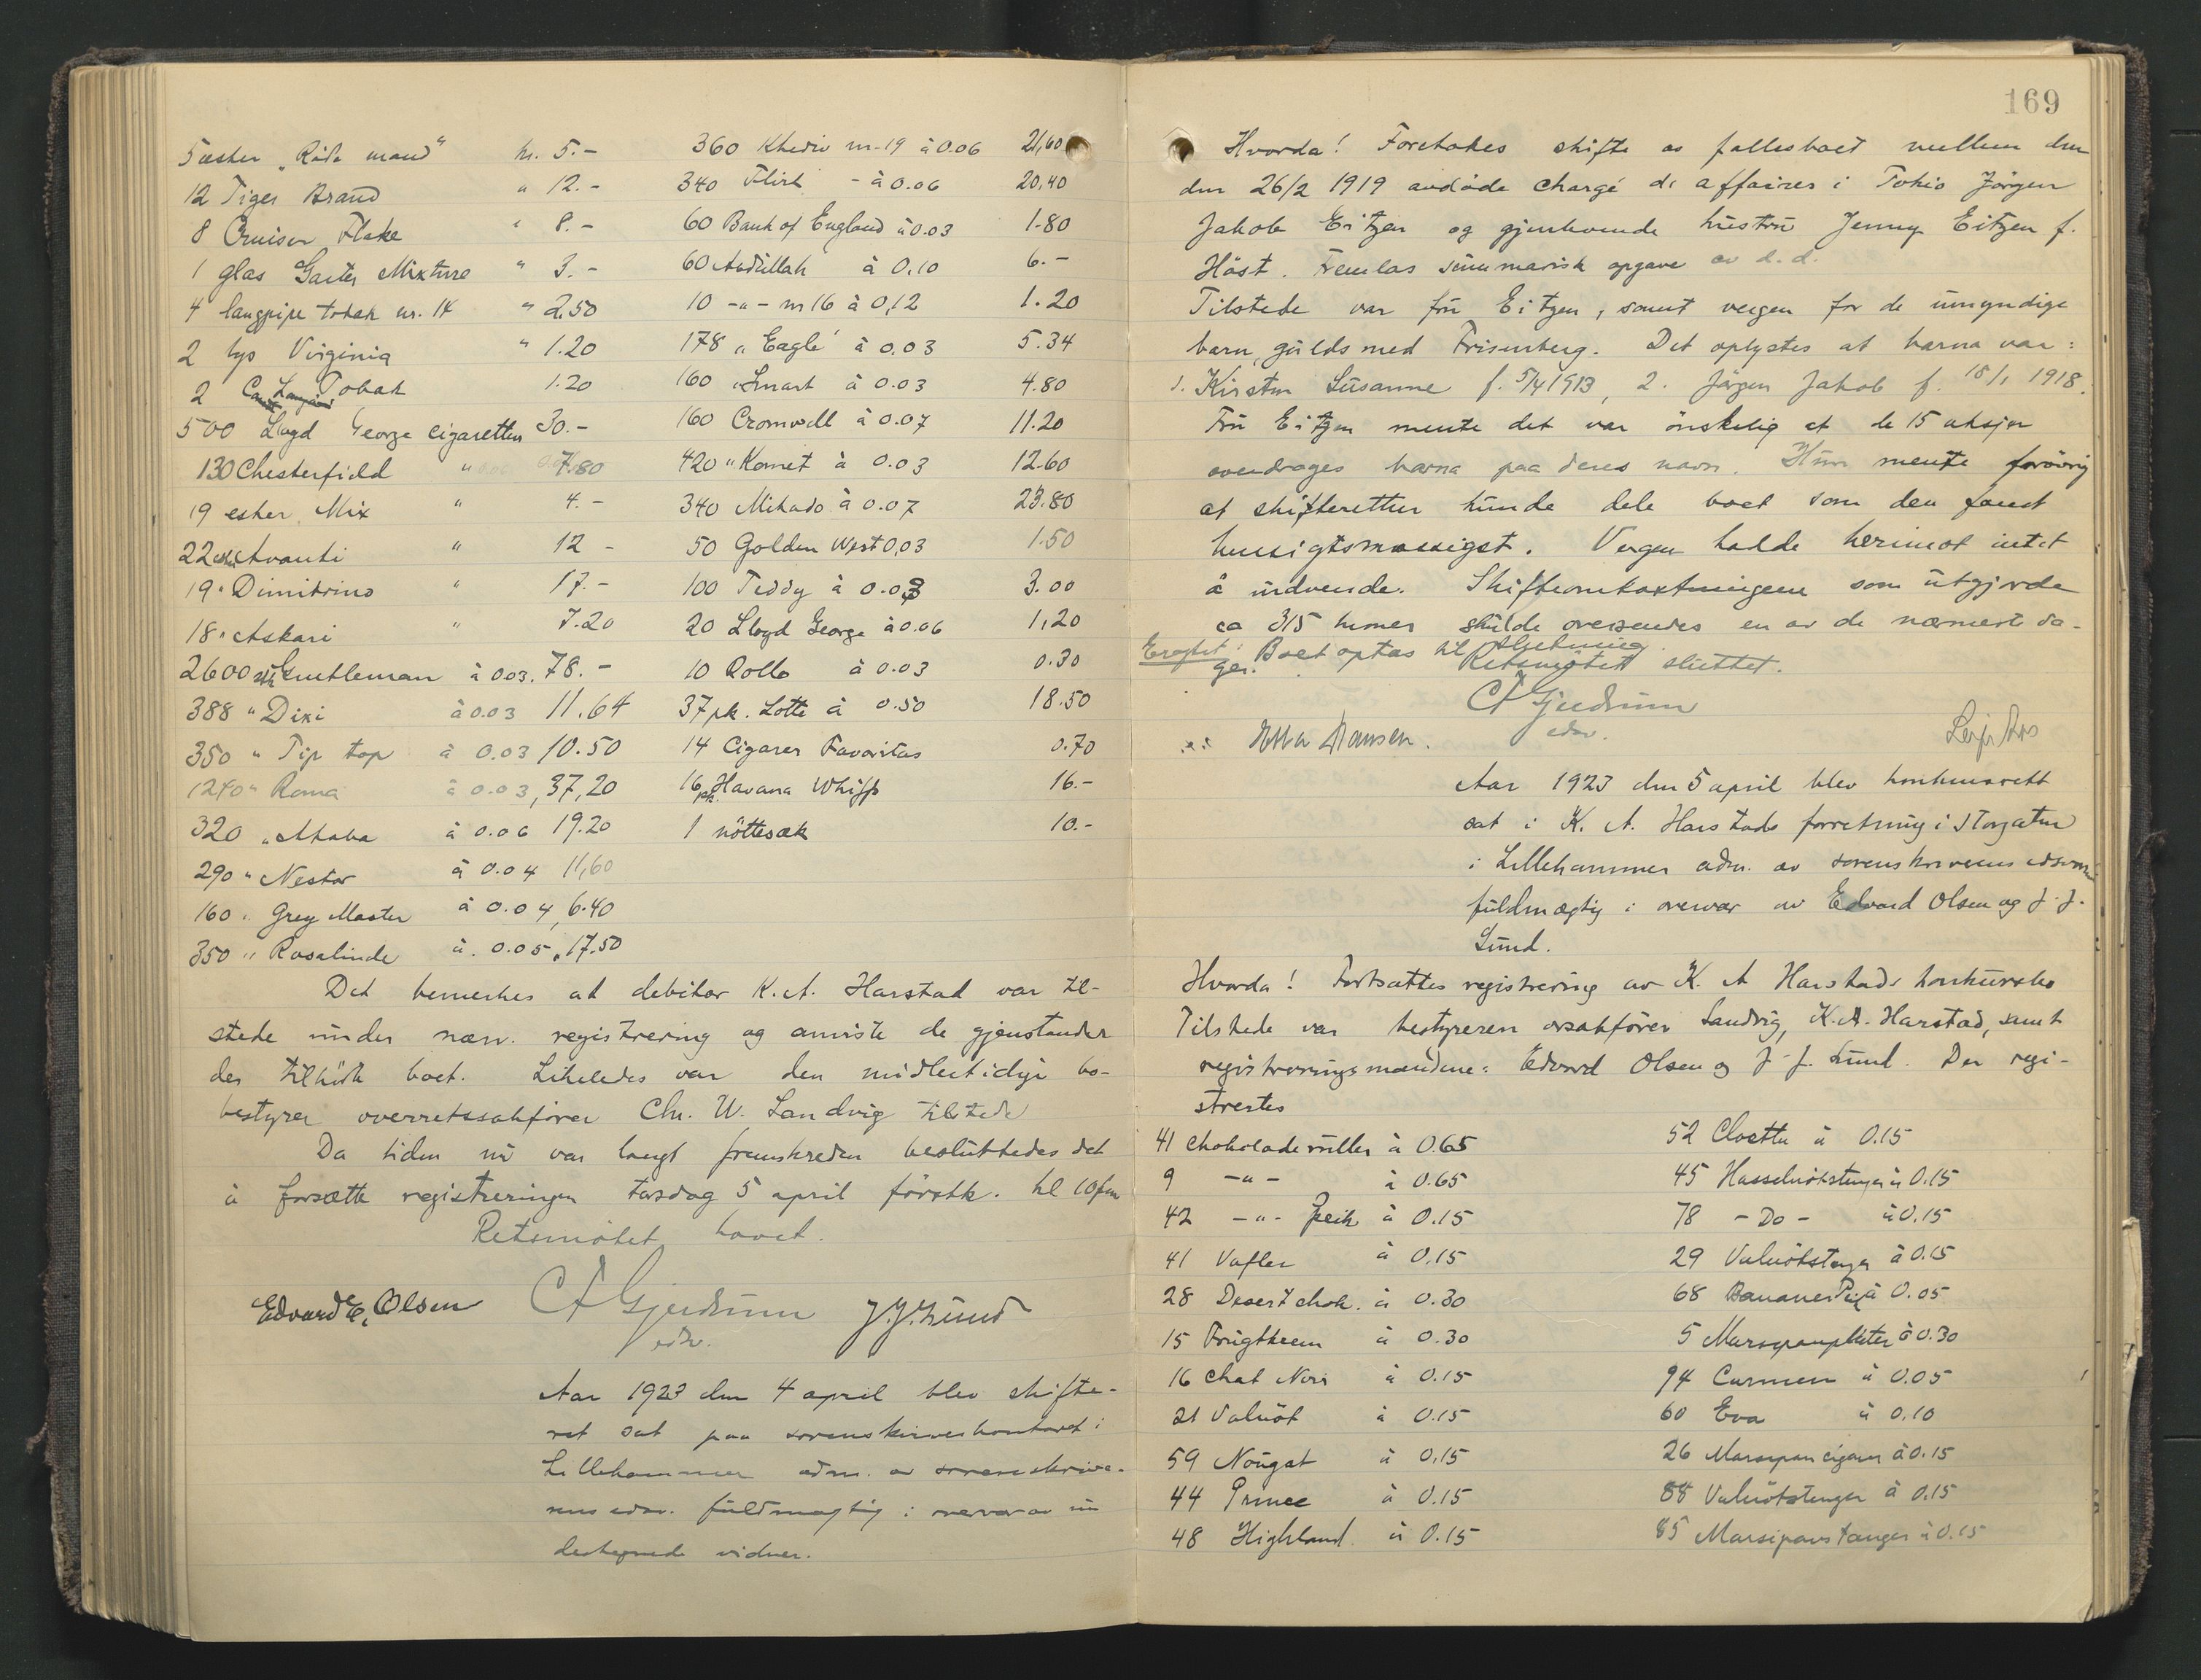 5 æsker „Røde mand" kr. 5.-
12 Tiger Brand " 12.-
8 Cruiser Flake " 8.-
1 glas Garter Mixture " 3.-
4 langpipe tobak nr. 14 " 2,50
2 hg Virginia " 1.20
2 Tobak 1.20
500 Lloyd George cigaretter 30.-
130 Chesterfield " 7.80
19 esker Mix " 4.-
22 esk. Avanti " 12 -
19 " Dimitrino " 17.-
18 " Askari " 7.20
2600 stk Gentleman à 0.03. 78.-
388 " Dixi à 0.03 11.64
350 " Tip top à 0.03 10.50
1240 " Roma à 0.03, 37,20
320 " Akaba à 0.06 19.20
290 " Nestor à 0.04 11,60
160 " Grey Master à 0.04, 6.40
350 " Rosalinde à 0.05, 17.50
360 Khediv nr. 19 à 0.06 21,60
340 Flirt - à 0.06 20,40
60 Bank of England à 0.03 1.80
60 Abdullah à 0,10 6.-
10 -"- nr 16 à 0,12 1.20
178 „Eagle" à 0,03 5.34
160 „Smart à 0.03 4.80
160 Cromwell à 0.07 11.20
420 "Komet à 0.03 12.60
340 Mikado à 0.07 23.80
50 Golden West 0,03 1.50
100 Teddy à 0.03 3.00
20 Lloyd George à 0.06 1,20
10 Rollo à 0.03 0.30
37 pk. Lotte à 0.50 18.50
14 Cigarer Favoritas 0.70
16 pk. Havana Whiffs 16.-
1 nöttesæk 10.-
Det bemerkes at debitor K. A. Harstad var til-
stede under næv. registrering og anviste de gjenstander
der tilhörte boet. Likeledes var den midlertidige bo-
bestyrer overretssakförer Chr. W. Sandvig tilstede
Da tiden nu var langt fremskreden besluttedes det
å forsætte registreringen torsdag 5 april förstk. kl 10 fm
Retsmötet hævet.
Edvard E. Olsen C F Gjerdrum J. J. Lund
edsv.
Aar 1923 den 4 april blev skifte-
ret sat paa sorenskriverkontoret i
Lillehammer adm. av sorenskrive-
rens edsv. fuldmægtig i overvær av un-
dertegnede vidner.
169
Hvorda! Foretokes skifte av fællesboet mellem den
den 26/2 1919 avdöde chargé d'affaires i Tokio Jörgen
Jakob Eitzen og gjenlevende hustru Jenny Eitzen f.
Höst. Fremlas summarisk opgave av d. d.
Tilstede var fru Eitzen, samt vergen for de umyndige
barn, guldsmed Frisenberg. Det oplystes at barna var:
1. Kirsten Susanne f. 5/4 1913, 2. Jörgen Jakob f. 18/1 1918.
Fru Eitzen mente det var önskelig at de 15 aksjer
overdrages barna paa deres navn. Hun mente forövrig
at skifteretten kunde dele boet som den fandt
hensigtsmæssigst. Vergen hadde herimot intet
å indvende. Skifteomkostningene som utgjorde
ca 315 kroner skulde oversendes en av de nærmeste da-
ger.
Eragtet: Boet optas til slutning.
Retsmötet sluttet.
C F Gjerdrum
edsv.
Hansen.
Aar 1923 den 5 april blev konkursrett
sat i K. A. Harstads forretning i Storgaten
i Lillehammer adm. av sorenskriverens edsvorne
fuldmægtig i overvær av Edvard Olsen og J. J.
Lund.
Hvorda! Fortsattes registrering av K. A Harstads konkursbo
Tilstede var bestyreren orsakförer Sandvig, K. A. Harstad, samt
registreringsmændene: Edvard Olsen og J. J. Lund. Der regi-
strertes
41 Chokoladeruller à 0.65
9 -"- à 0.65
42 -"- Peik à 0.15
41 Vafler à 0.15
28 Desert chok. à 0.30
15 Frugtkrem à 0.30
16 Chat Noir à 0.15
21 Valnöt à 0.15
59 Nougat à 0,15
44 Prince à 0.15
48 Highland à 0.15
52 Cloetta à 0.15
45 Hasselnötstenger à 0.15
78 - Do - à 0.15
29 Valnötstenger à 0.15
68 Bananer à 0.05
5 Marsipanplater à 0.30
94 Carmen à 0.05
60 Eva à 0,10
26 Marsipan cigarer à 0.15
88 Valnötstenger à 0.15
85 Marsipanstanger à 0.15